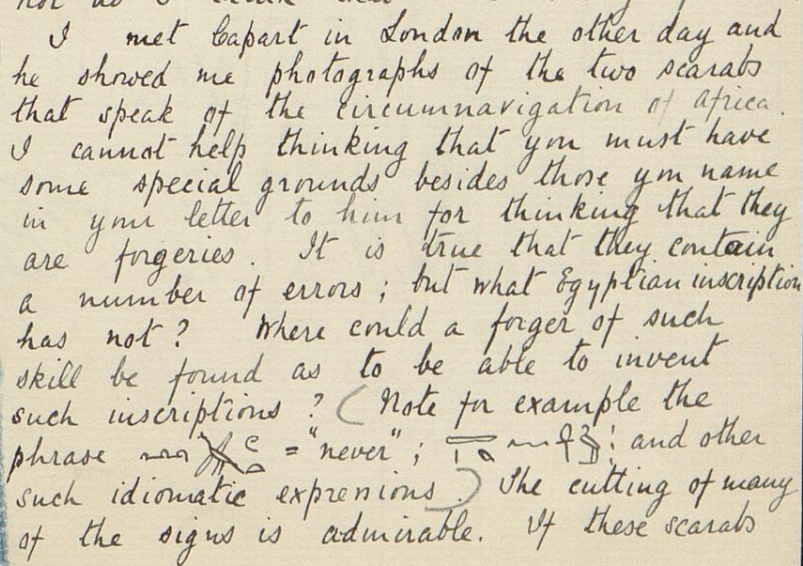 I met Capart in London the other day and
he showed me photographs of the two scarabs
that speak of the circumnavigation of Africa.
I cannot help thinking that you must have
some special grounds besides those you name
in your letter to him for thinking that they
are forgeries. It is true that they contain
a number of errors; but what Egyptian inscription
has not? Where could a forger of such
skill be found as to be able to invent
such inscriptions? (Note for example the
phrase = "never"; : and other
such idiomatic expressions.) The cutting of many
of the signs is admirable. If these scarabs